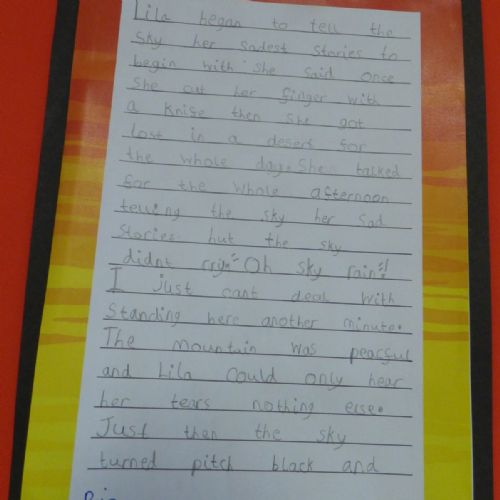 Lila began to tell the
sky her sadest stories to
begin with she said once
she cut her finger with
a knife then she got
lost in a desert for
the whole day. She talked
for the whole afternoon
telling the sky her sad
stories but the sky
didnt cry. "Oh sky rain"!
I just cant deal with
standing here another minute.
The mountain was pearful
and Lila could only hear
her tears nothing else.
Just then the sky
turned pitch black and